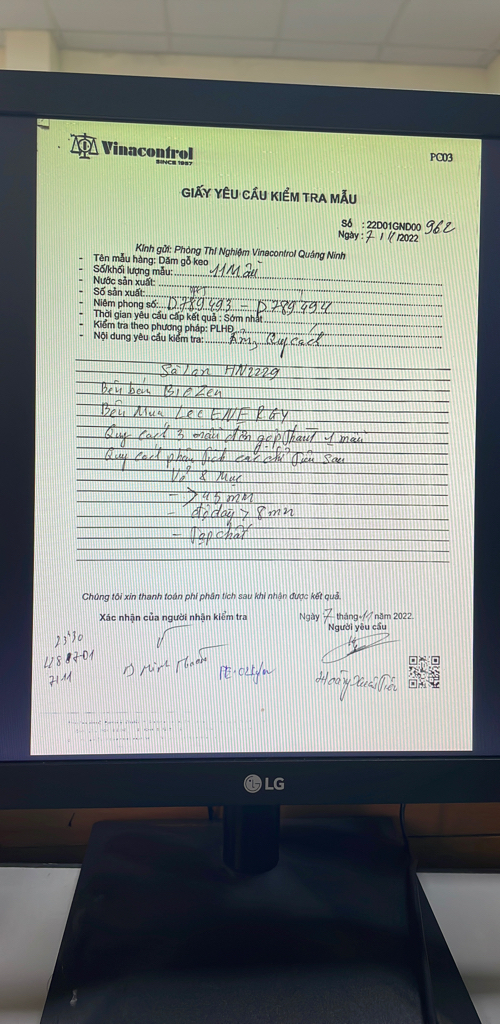 Vinacontrol
SINCE 1957
PC03
GIẤY YÊU CẦU KIỂM TRA MẪU
Số : 22D01GND00 962
Ngày: 7 / 11 /2022
Kính gửi: Phòng Thí Nghiệm Vinacontrol Quảng Ninh
- Tên mẫu hàng: Dăm gỗ keo
- Số/khối lượng mẫu: 11 Mẫu
- Nước sản xuất:
- Số sản xuất:
- Niêm phong số: D.789493 - D789494
- Thời gian yêu cầu cấp kết quả : Sớm nhất
- Kiểm tra theo phương pháp: PLHĐ
- Nội dung yêu cầu kiểm tra: Ẩm, Quy cách
Sà Lan HN2229
Bên bán BIOZen
Bên Mua Lee ENERGY
Quy cách 3 mẫu đơn gộp thành 1 mẫu
Quy cách phân tích các chỉ tiêu sau
Vỏ & Mục
- > 45 mm
- độ dày > 8 mm
- Tạp chất
Chúng tôi xin thanh toán phí phân tích sau khi nhận được kết quả.
Xác nhận của người nhận kiểm tra
Ngày 7 tháng 11 năm 2022.
Người yêu cầu
23h30
7/11
Hoàng Xuân Tiến
LG